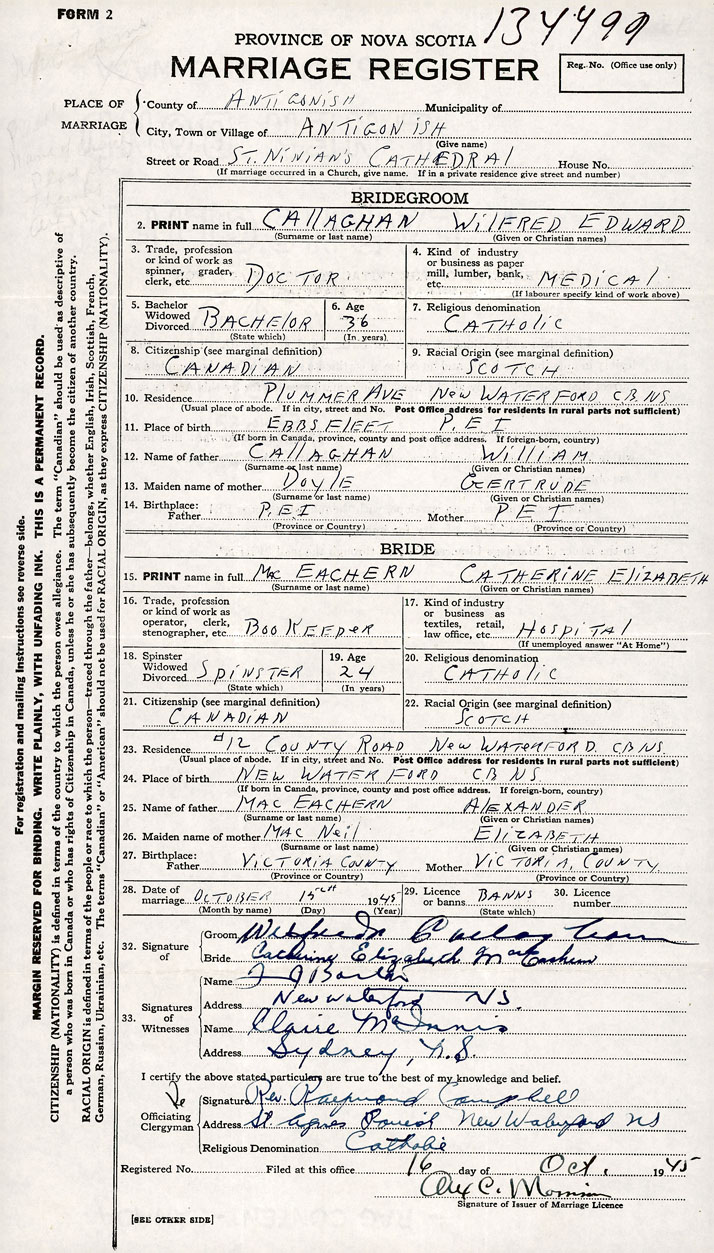 FORM 2
134499
PROVINCE OF NOVA SCOTIA
MARRIAGE REGISTER
Reg. No. (Office use only)
PLACE OF MARRIAGE
County of ANTIGONISH Municipality of
City, Town or Village of ANTIGONISH
(Give name)
Street or Road ST. NINIAN'S CATHEDRAL House No.
(If marriage occurred in a Church, give name. If in a private residence give street and number)
BRIDEGROOM
2. PRINT name in full CALLAGHAN WILFRED EDWARD
(Surname or last name) (Given or Christian names)
3. Trade, profession or kind of work as spinner, grader, clerk, etc. DOCTOR
4. Kind of industry or business as paper mill, lumber, bank, etc. MEDICAL
(If labourer specify kind of work above)
5. Bachelor Widowed Divorced BACHELOR
(State which)
6. Age 36
(In years)
7. Religious denomination
CATHOLIC
8. Citizenship (see marginal definition)
CANADIAN
9. Racial Origin (see marginal definition)
SCOTCH
10. Residence PLUMMER AVE NEW WATERFORD CB NS
(Usual place of abode. If in city, street and No. Post Office address for residents in rural parts not sufficient)
11. Place of birth EBBSFLEET P.E.I
(If born in Canada, province, county and post office address. If foreign-born, country)
12. Name of father CALLAGHAN WILLIAM
(Surname or last name) (Given or Christian names)
13. Maiden name of mother DOYLE GERTRUDE
(Surname or last name) (Given or Christian names)
14. Birthplace: Father P.E.I Mother P E I
(Province or Country) (Province or Country)
BRIDE
15. PRINT name in full Mac EACHERN CATHERINE ELIZABETH
(Surname or last name) (Given or Christian names)
16. Trade, profession or kind of work as operator, clerk, stenographer, etc. BOOKEEPER
17. Kind of industry or business as textiles, retail, law office, etc. HOSPITAL
(If unemployed answer "At Home")
18. Spinster Widowed Divorced SPINSTER
(State which)
19. Age 24
(In years)
20. Religious denomination
CATHOLIC
21. Citizenship (see marginal definition)
CANADIAN
22. Racial Origin (see marginal definition)
SCOTCH
23. Residence #12 COUNTY ROAD NEW WATERFORD CB NS
(Usual place of abode. If in city, street and No. Post Office address for residents in rural parts not sufficient)
24. Place of birth NEW WATERFORD CB NS
(If born in Canada, province, county and post office address. If foreign-born, country)
25. Name of father MAC EACHERN ALEXANDER
(Surname or last name) (Given or Christian names)
26. Maiden name of mother MAC NEIL ELIZABETH
(Surname or last name) (Given or Christian names)
27. Birthplace: Father VICTORIA COUNTY Mother VICTORIA, COUNTY
(Province or Country) (Province or Country)
28. Date of marriage OCTOBER 15 1945
(Month by name) (Day) (Year)
29. Licence or banns BANNS
(State which)
30. Licence number
32. Signature of
Groom Callaghan
Bride Catherine Elizabeth MacEachern
33. Signatures of Witnesses
Name
Address New Waterford NS.
Name Claire McInnis
Address Sydney, N.S.
I certify the above stated particulars are true to the best of my knowledge and belief.
Officiating Clergyman
Signature Rev. Raymond Campbell
Address St Agnes Parish New Waterford NS
Religious Denomination Catholic
Registered No. Filed at this office 16 day of Oct. 1945
Signature of Issuer of Marriage Licence
[SEE OTHER SIDE]
For registration and mailing instructions see reverse side.
MARGIN RESERVED FOR BINDING. WRITE PLAINLY, WITH UNFADING INK. THIS IS A PERMANENT RECORD.
CITIZENSHIP (NATIONALITY) is defined in terms of the country to which the person owes allegiance. The term "Canadian" should be used as descriptive of
a person who was born in Canada or who has rights of Citizenship in Canada, unless he or she has subsequently become the citizen of another country.
RACIAL ORIGIN is defined in terms of the people or race to which the person—traced through the father—belongs, whether English, Irish, Scottish, French,
German, Russian, Ukrainian, etc. The terms "Canadian" or "American" should not be used for RACIAL ORIGIN, as they express CITIZENSHIP (NATIONALITY).